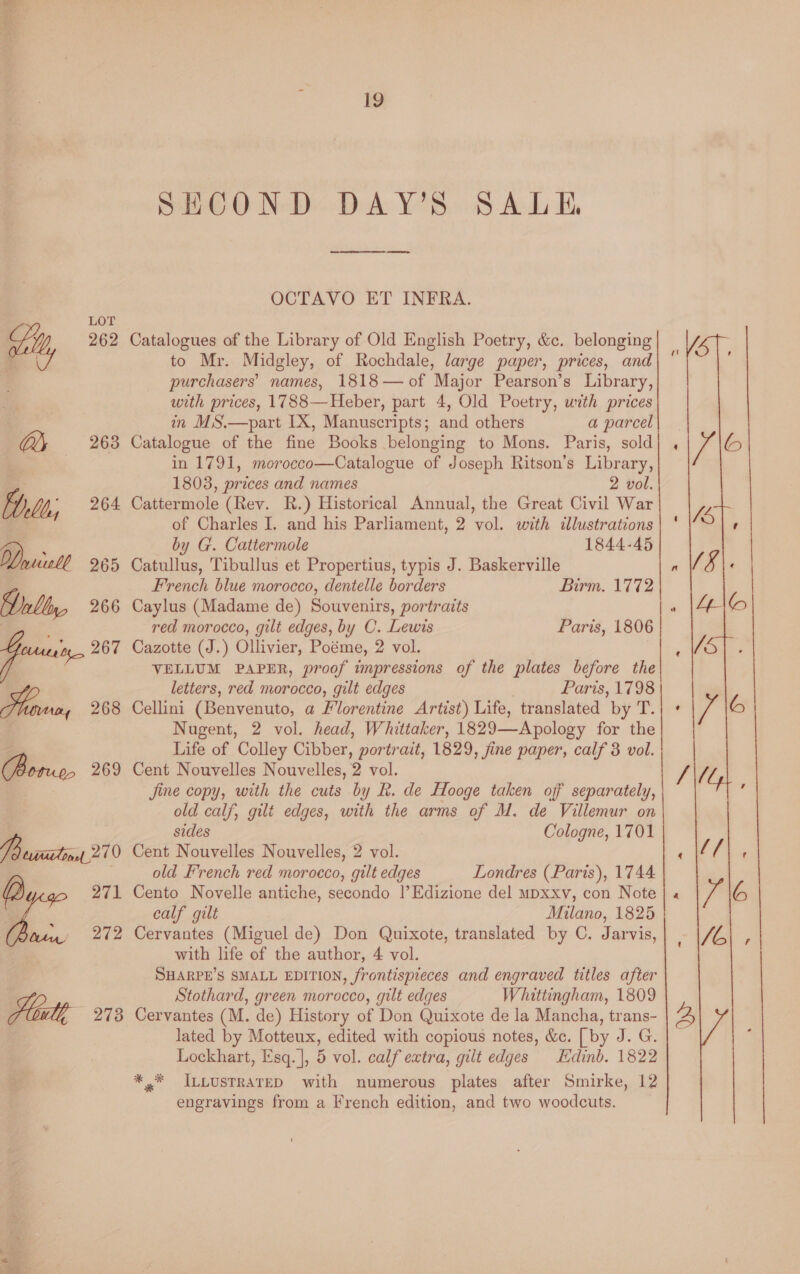 19
SECOND DAY'S SALE.
OCTAVO ET INFRA.
LOT
Lilly 262 Catalogues of the Library of Old English Poetry, &c. belonging
to Mr. Midgley, of Rochdale, large paper, prices, and
purchasers' names, 1818—of Major Pearson's Library,
with prices, 1788—Heber, part 4, Old Poetry, with prices
in MS.—part IX, Manuscripts; and others a parcel
263 Catalogue of the fine Books belonging to Mons. Paris, sold 7 6
in 1791, morocco—Catalogue of Joseph Ritson's Library,
1803, prices and names 2 vol.
264 Cattermole (Rev. R.) Historical Annual, the Great Civil War
of Charles I. and his Parliament, 2 vol. with illustrations
by G. Cattermole 1844-45
265 Catullus, Tibullus et Propertius, typis J. Baskerville 18
French blue morocco, dentelle borders Birm. 1772
266 Caylus (Madame de) Souvenirs, portraits 4 6
red morocco, gilt edges, by C. Lewis Paris, 1806
267 Cazotte (J.) Ollivier, Poéme, 2 vol.
VELLUM PAPER, proof impressions of the plates before the
letters, red morocco, gilt edges Paris, 1798
268 Cellini (Benvenuto, a Florentine Artist) Life, translated by T. 7 6
Nugent, 2 vol. head, Whittaker, 1829—Apology for the
Life of Colley Cibber, portrait, 1829, fine paper, calf 3 vol.
269 Cent Nouvelles Nouvelles, 2 vol.
fine copy, with the cuts by R. de Hooge taken off separately,
old calf, gilt edges, with the arms of M. de Villemur on
sides Cologne, 1701
270 Cent Nouvelles Nouvelles, 2 vol. 11
old French red morocco, gilt edges Londres (Paris), 1744
271 Cento Novelle antiche, secondo l'Edizione del MDXXV, con Note 7 6
calf gilt Milano, 1825
Bain 272 Cervantes (Miguel de) Don Quixote, translated by C. Jarvis, 16
with life of the author, 4 vol.
SHARPE'S SMALL EDITION, frontispieces and engraved titles after
Stothard, green morocco, gilt edges Whittingham, 1809
Heath 273 Cervantes (M. de) History of Don Quixote de la Mancha, trans-
lated by Motteux, edited with copious notes, &c. [by J. G.
Lockhart, Esq.], 5 vol. calf extra, gilt edges Edinb. 1822
*⁎* ILLUSTRATED with numerous plates after Smirke, 12
engravings from a French edition, and two woodcuts.